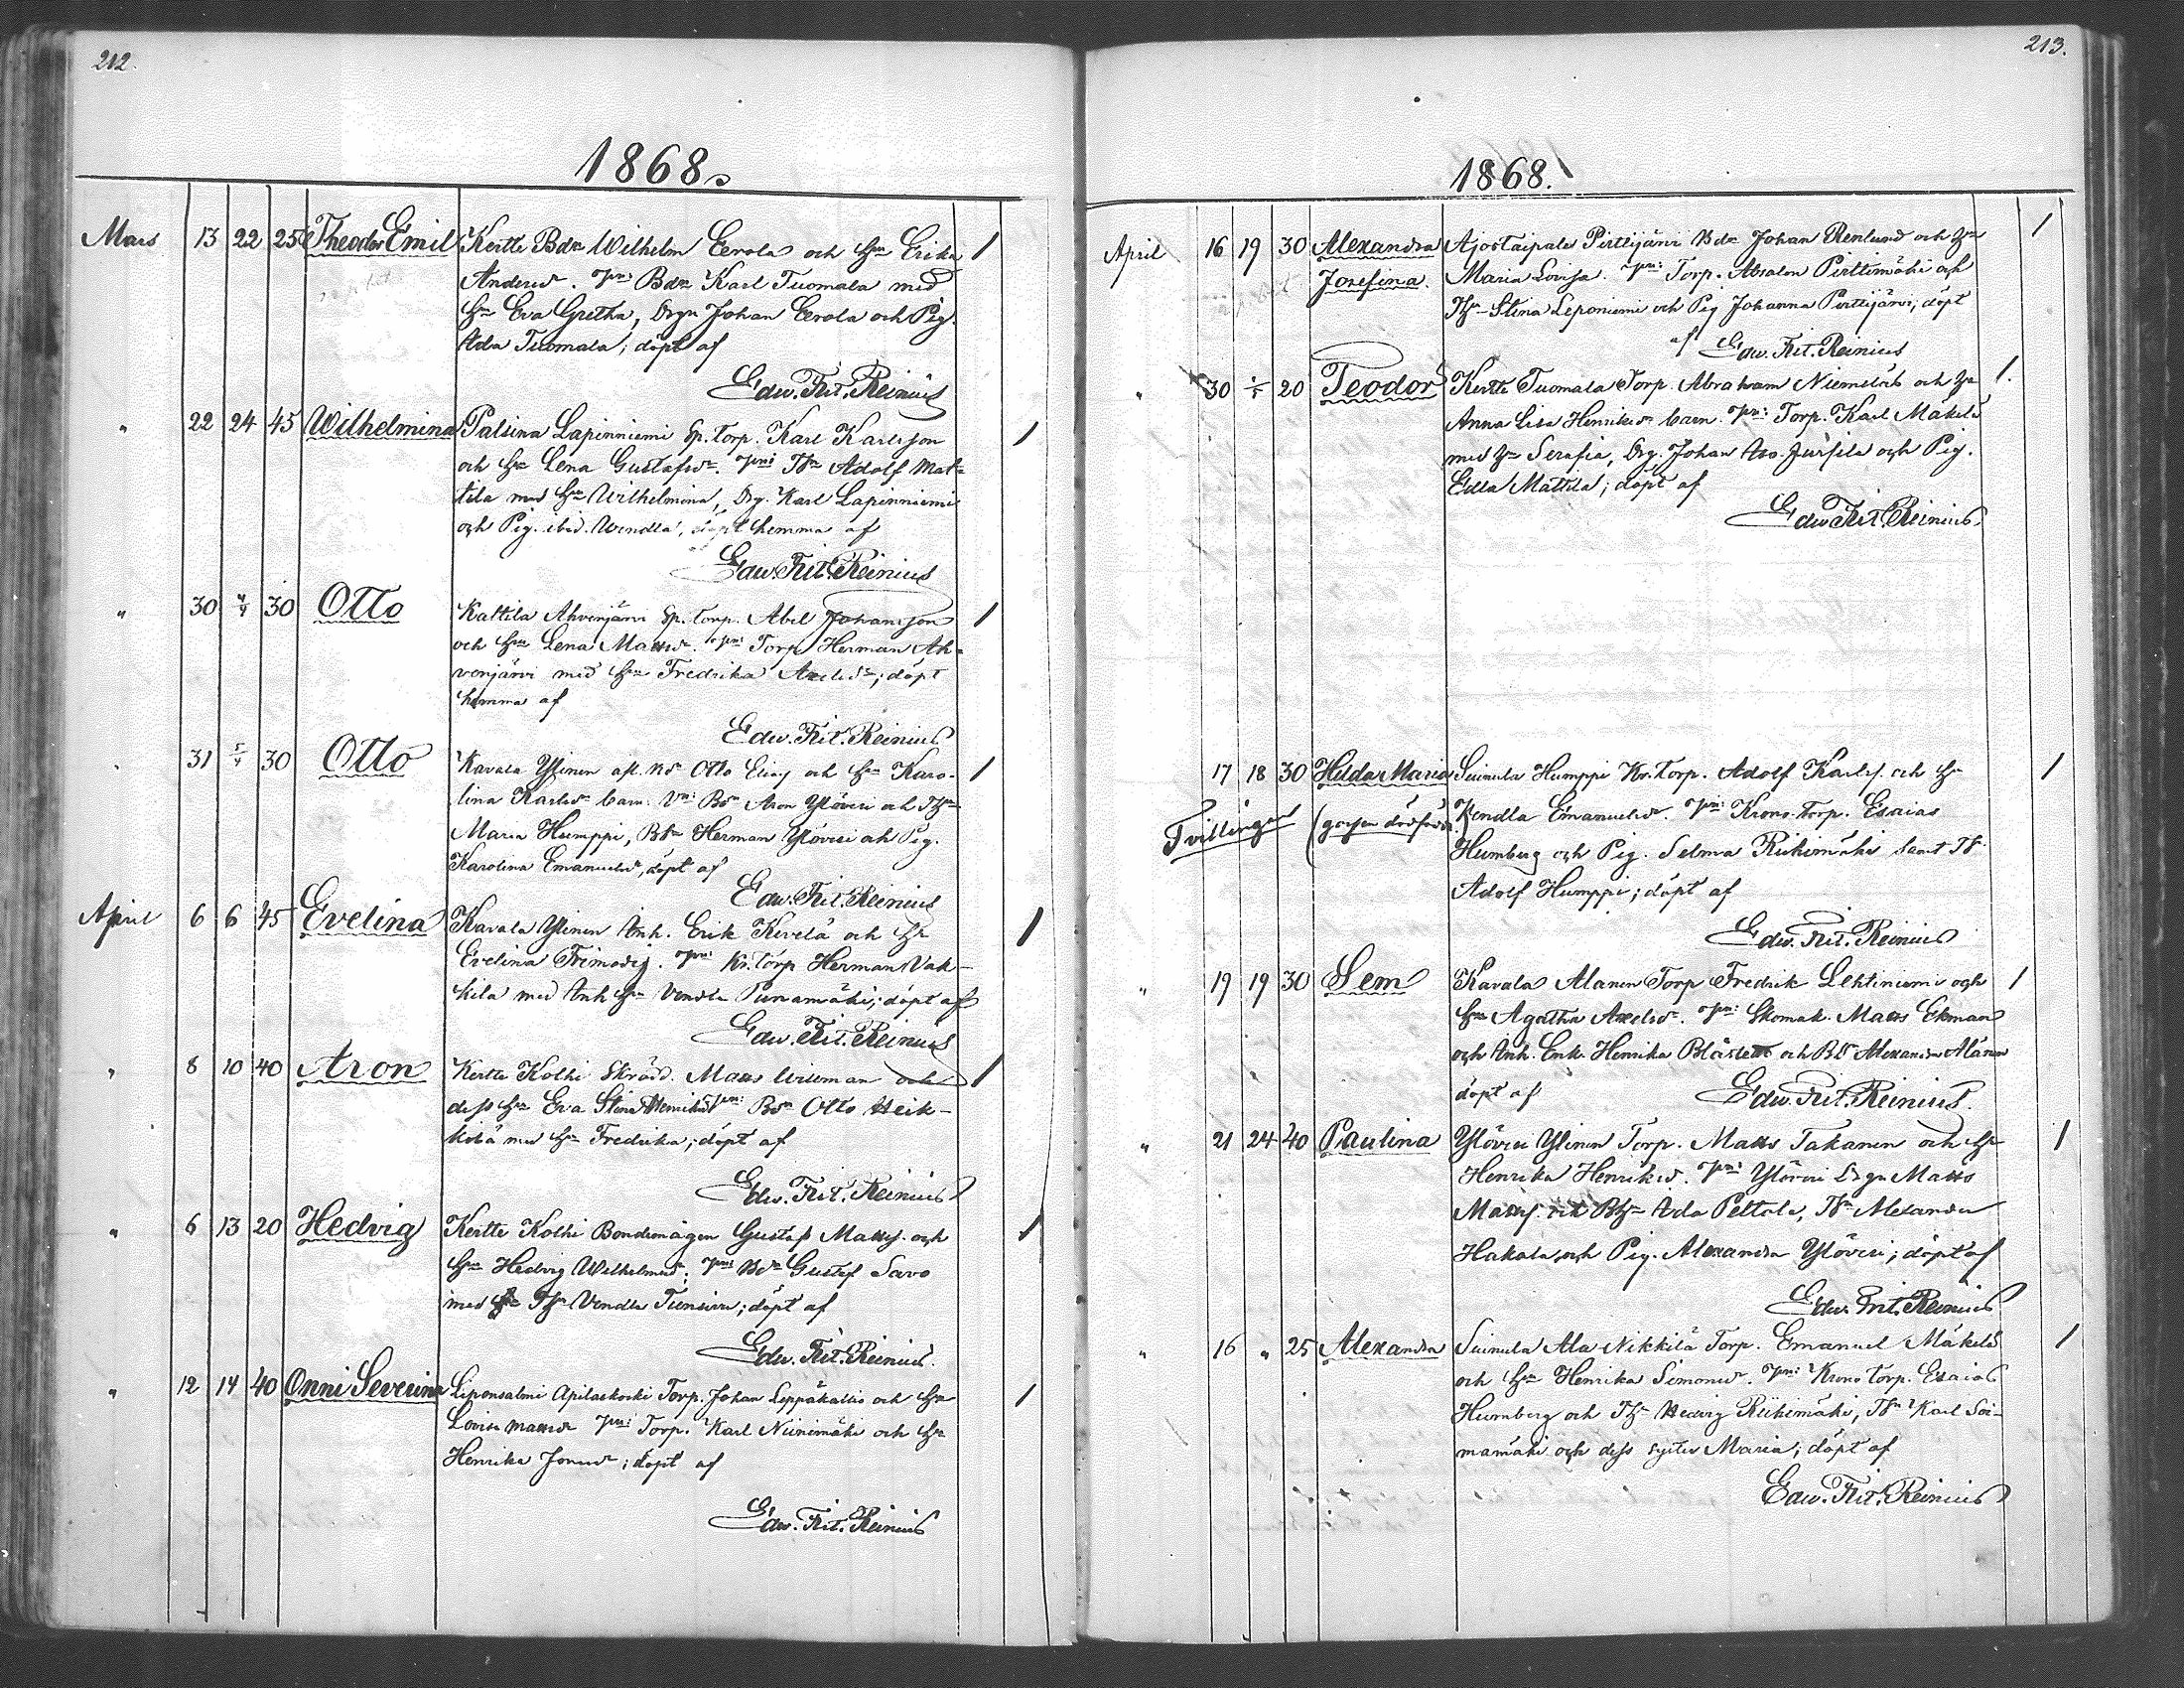 212.
1868.
Mars 13 22 25 Theodor Emil Kertte Bdn Wilhelm Eerola och Hu Erika 1
Andersdr. Vni Bdn Karl Tuomala med
Hu Eva Gretha, Drgn Johan Eerola och Pig.
Ada Tuomala; döpt af
Edw. Frit. Reinius
" 22 24 45 Wilhelmina Palsina Lapinniemi Sp. Torp. Karl Karlsson 1
och Hu Lena Gustafsdr. Vni Adolf Mat-
tila med Hu Wilhelmina, Drg. Karl Lapinniemi
och Pig. ibid. Wendla, döpt hemma af
Edw. Frit. Reinius
" 30 4/4 30 Otto Kattila Ahvenjärvi Sp. Torp. Abel Johansson 1
och Hu Lena Mattsdr. Vni Torp Herman Ah-
venjärvi med Hu Fredrika Axelsdr; döpt
hemma af
Edw. Frit. Reinius
" 31 5/4 30 Otto Kavala Ylinen Otto Elias och Hu Karo- 1
lina Karlsdr barn. Vni Bdn Aron Ylöveri och
Maria Humppi, Bdn Herman Ylöveri och Pig.
Karolina Emanuelsdr, döpt af
Edw. Frit. Reinius
April 6 6 45 Evelina Kavala Ylinen Inh. Erik Kivelä och Hu 1
Evelina Frimodig. Vni Kr. Torp Herman Vak-
kila med Inh Hu Vendla Punamäki; döpt af
Edw. Frit. Reinius
" 8 10 40 Aron Kertte Kolhi Skrädd. Matts Willman och 1
dess Hu Eva Stina Henriksdr Vni Bdn Otto Heik-
kilä med Hu Fredrika; döpt af
Edw. Frit. Reinius
" 6 13 20 Hedvig Kertte Kolhi Bondemågen Gustaf Matts. och 1
Hu Hedvig Wilhelmsdr; Vni Bdn Gustaf Savo
med Vendla; döpt af
Edw. Frit. Reinius.
" 12 14 40 Onni Severina Liponsalmi Apilaskoski Torp. Johan Leppäkallio och Hu 1
Lovisa Mattsdr Vni Torp. Karl Niinimäki och Hu
Henrika; döpt af
Edw. Frit. Reinius
213.
1868.
April 16 19 30 Alexandra Ajostaipale Pirttijärvi Bdn Johan Renlund och Hu 1
Josefina. Maria Lovisa. Vni: Torp. Absalon Pirttimäki och
Stina Leponiemi och Pig Johanna Pirttijärvi; döpt
af Edw. Frit. Reinius
" 30 1/5 20 Teodor Kertte Tuomala Torp. Abraham Niemelä och Hu 1.
Anna Lisa Henriksdr barn. Vni: Torp. Karl Mäkelä
med Hu Serafia, Drg. Johan och Pig.
Edla Mattila; döpt af
Edw. Frit. Reinius.
17 18 30 Hilda Maria Suinula Humppi Kr. Torp. Adolf Karls. och Hu 1
Tvillingar (gossen dödfödd) Vendla Emanuelsdr. Vni: Krono Torp. Esaias
Humberg och Pig. Selma Riihimäki samt
Adolf Humppi; döpt af
Edw. Frit. Reinius
" 19 19 30 Sem Kavala Alanen Torp Fredrik Lehtiniemi och 1
Hu Agatha Axelsdr. Vni: Skomak. Matts Ekman
och Inh. Enk. Henrika och Bdr Alexander Alanen
döpt af Edw. Frit. Reinius.
" 21 24 40 Paulina Ylöveri Ylinen Torp. Matts Takanen och Hu 1
Henrika Henriksd. Vni: Ylöveri Drgn Matts
Matts. och Ada Peltola, Alexander
Hakala och Pig. Alexandra Ylöveri; döpt af
Edw. Frit. Reinius
" 16 " 25 Alexandra Suinula Ala Nikkilä Torp. Emanuel Mäkelä 1
och Hu Henrika Simonsdr. Vni: Krono Torp. Esaias
Humberg och Hedvig Riihimäki, Karl Soi-
mamäki och dess syster Maria; döpt af
Edw. Frit. Reinius